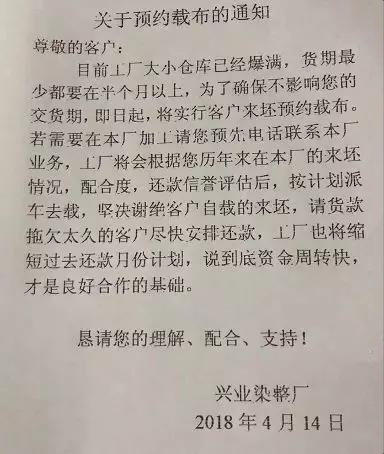 关于预约载布的通知
尊敬的客户：
目前工厂大小仓库己经爆满，货期最
少都要在半个月以上，为了确保不影响您的
交货期，即日起，将实行客户来坯预约载布。
若需要在本厂加工请您预先电话联系本厂
业务，工厂将会根据您历年来在本厂的来坯
情况，配合度，还款信誉评估后，按计划派
车去载，坚决谢绝客户自载的来坯，请货款
拖欠太久的客户尽快安排还款，工厂也将缩
短过去还款月份计划，说到底资金周转快，
才是良好合作的基础。
恳请您的理解、配合、支持！
兴业染整厂
2018年4月14日